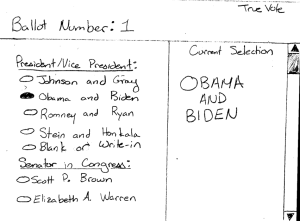 True Vote
Ballot Number: 1
President/Vice President:
Johnson and Gray
Obama and Biden
Romney and Ryan
Stein and Honkala
Blank or Write-in
Senator in Congress:
Scott P. Brown
Elizabeth A. Warren
Current Selection
OBAMA
AND
BIDEN